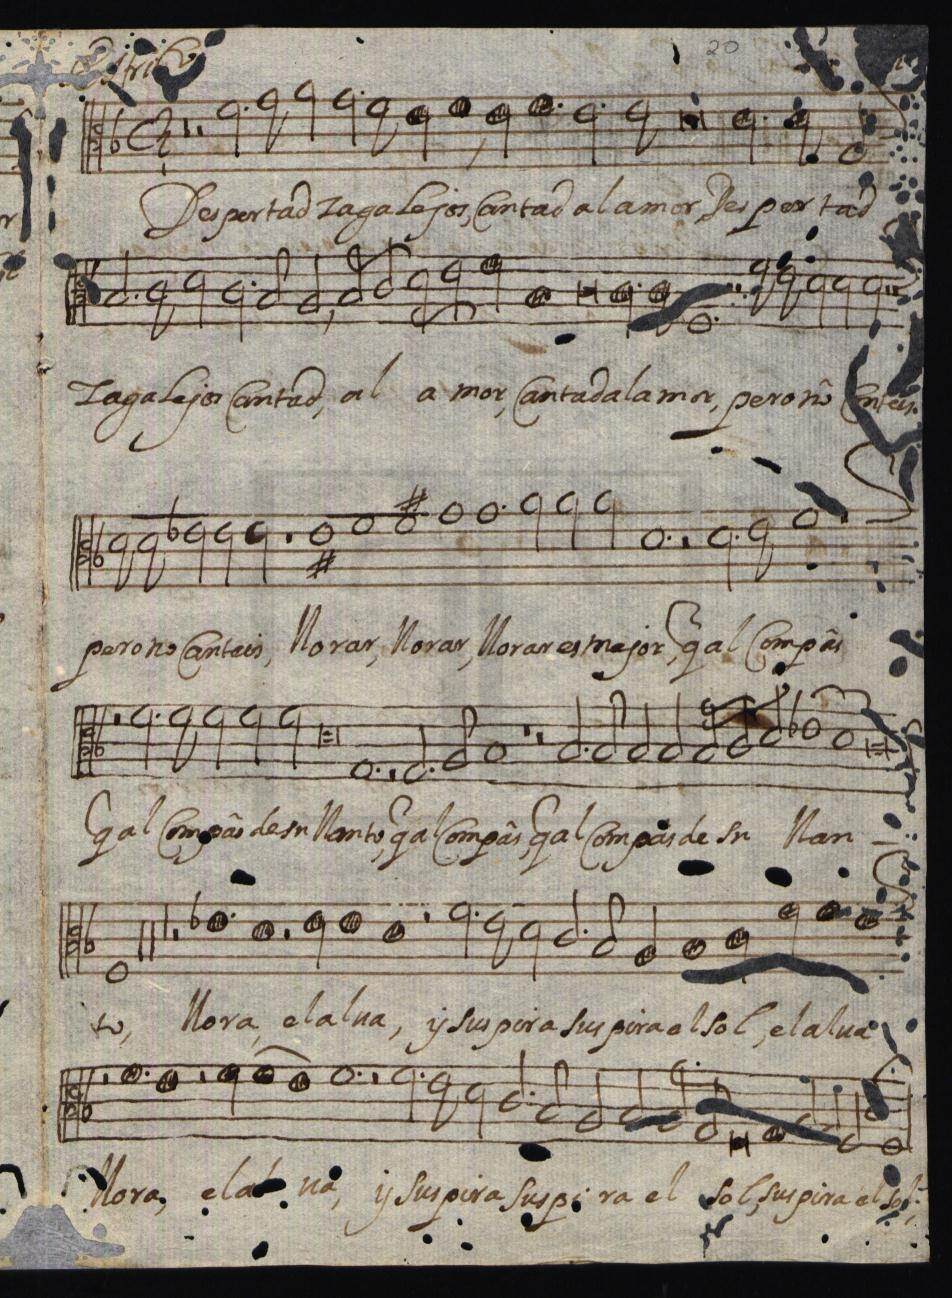 20
Despertad Zagalejos, Cantad al amor, Despertad
Zagalejos Cantad, al a mor, Cantad al amor, pero nõ Canteis
pero no Canteis, llorar, llorar, llorar es mejor, q̃ al Compãs
q̃ al Compãs de su llanto, q̃ al Compãs, q̃ al Compãs de su llan
to, llora, el alua, y suspira suspira el sol, el alua
llora, el al ua, y suspira suspi ra el sol, suspira el sol,